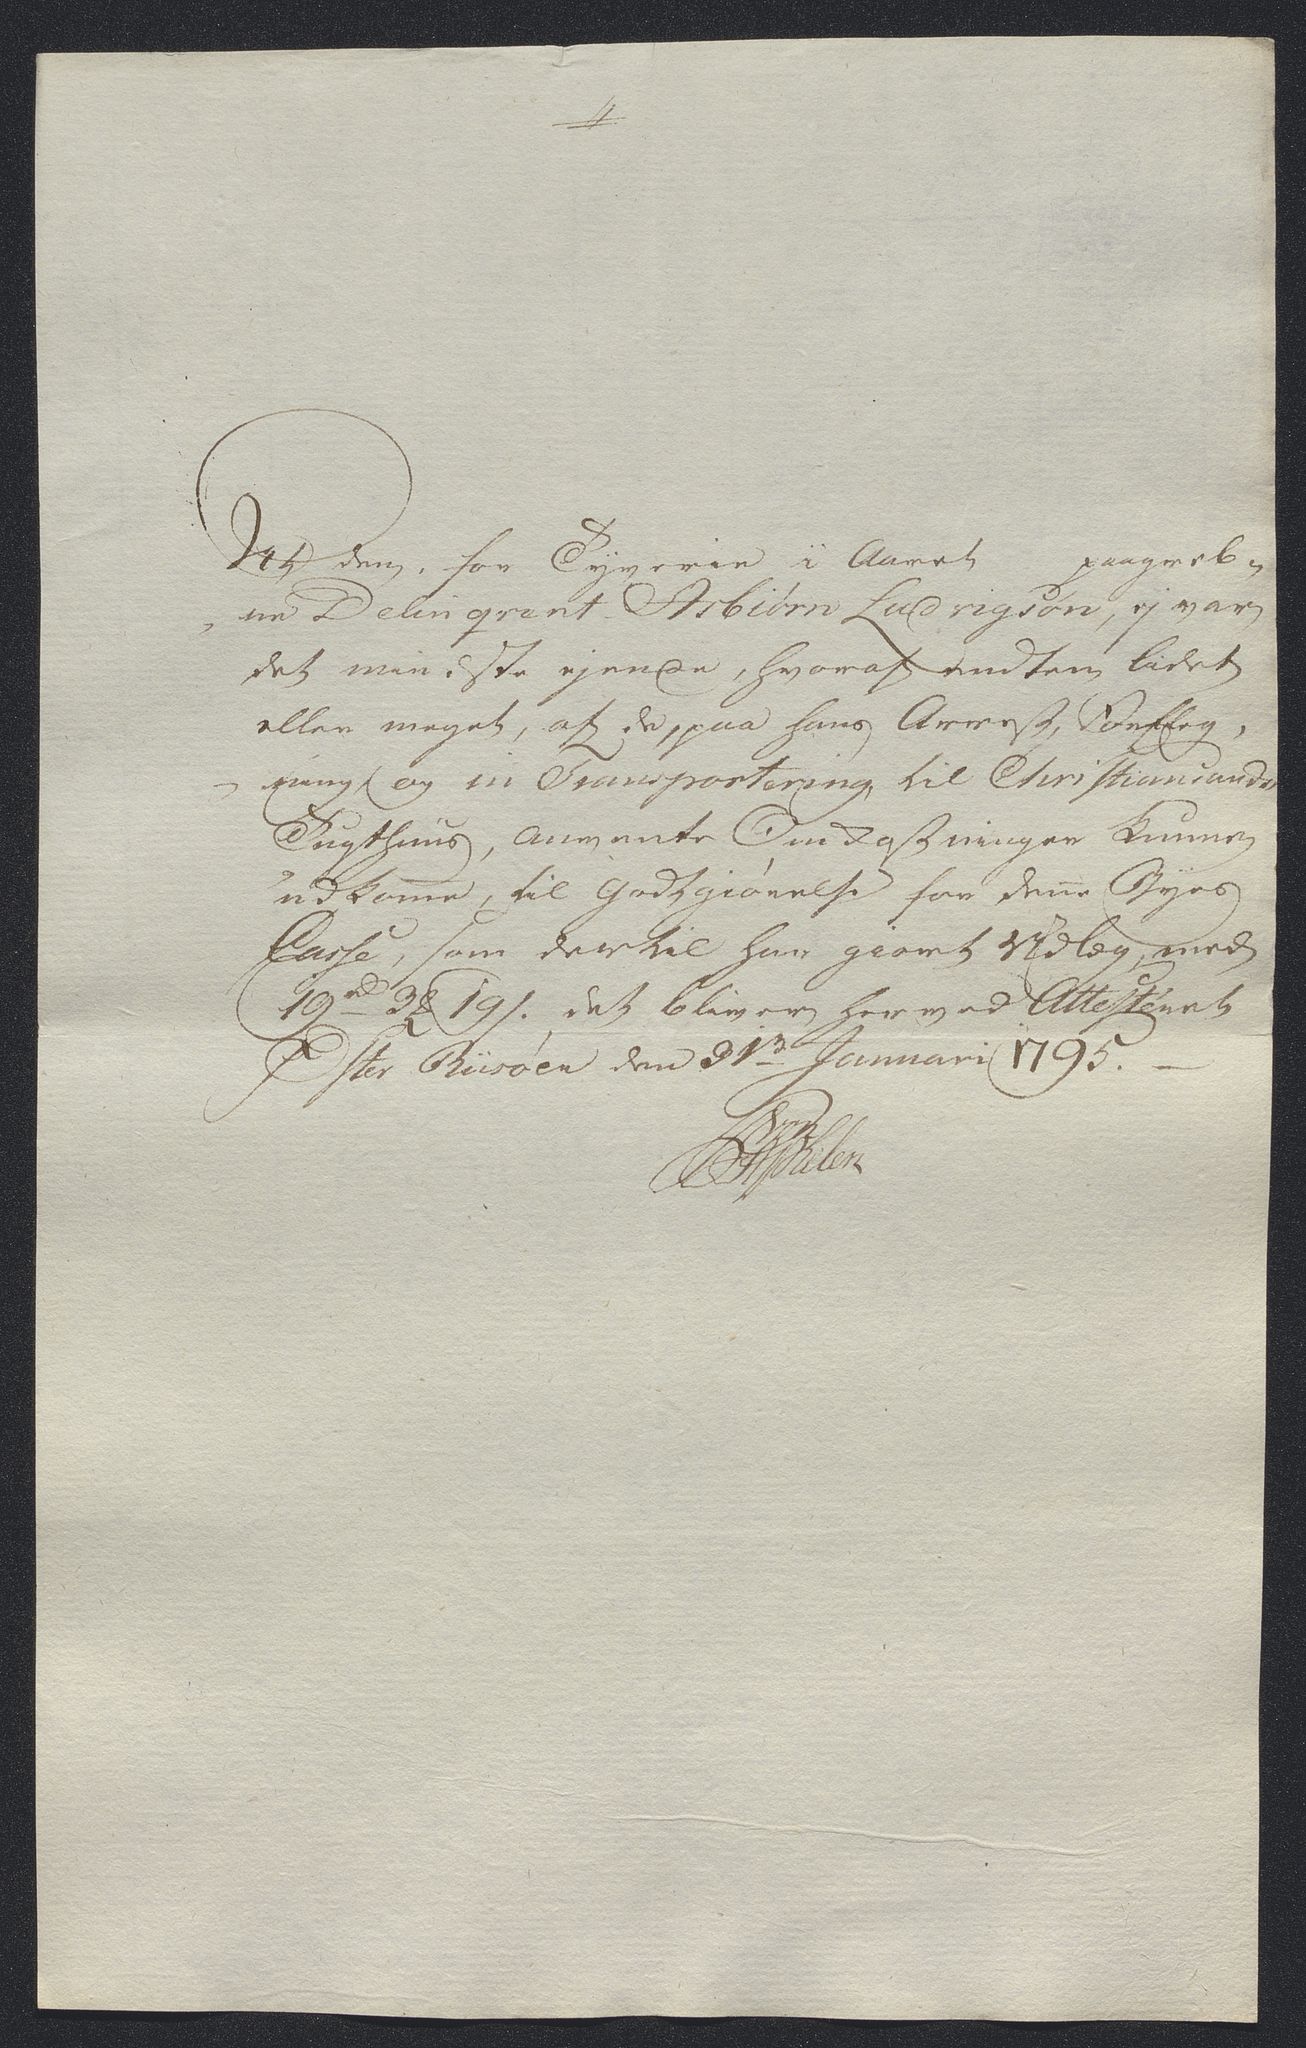 4
At den, for Tyverie i Aaret paagreb-
-ne Delinqvent Asbiørn Ludvigsøn, ej var
det mindste ejende, hvoraf endten lidet
eller meget, af de, paa hans Arrest,
og in Transportering, til Christiansands
Tugthuus, anvente Omkostninger kunne
udkome, til Godtgiørelse for dene Byes
Casse, som dertil har giort Udlæg, med
19rd 3 19s. det bliver herved Attesteret
Øster Riisøer den 31te Januari 1795.